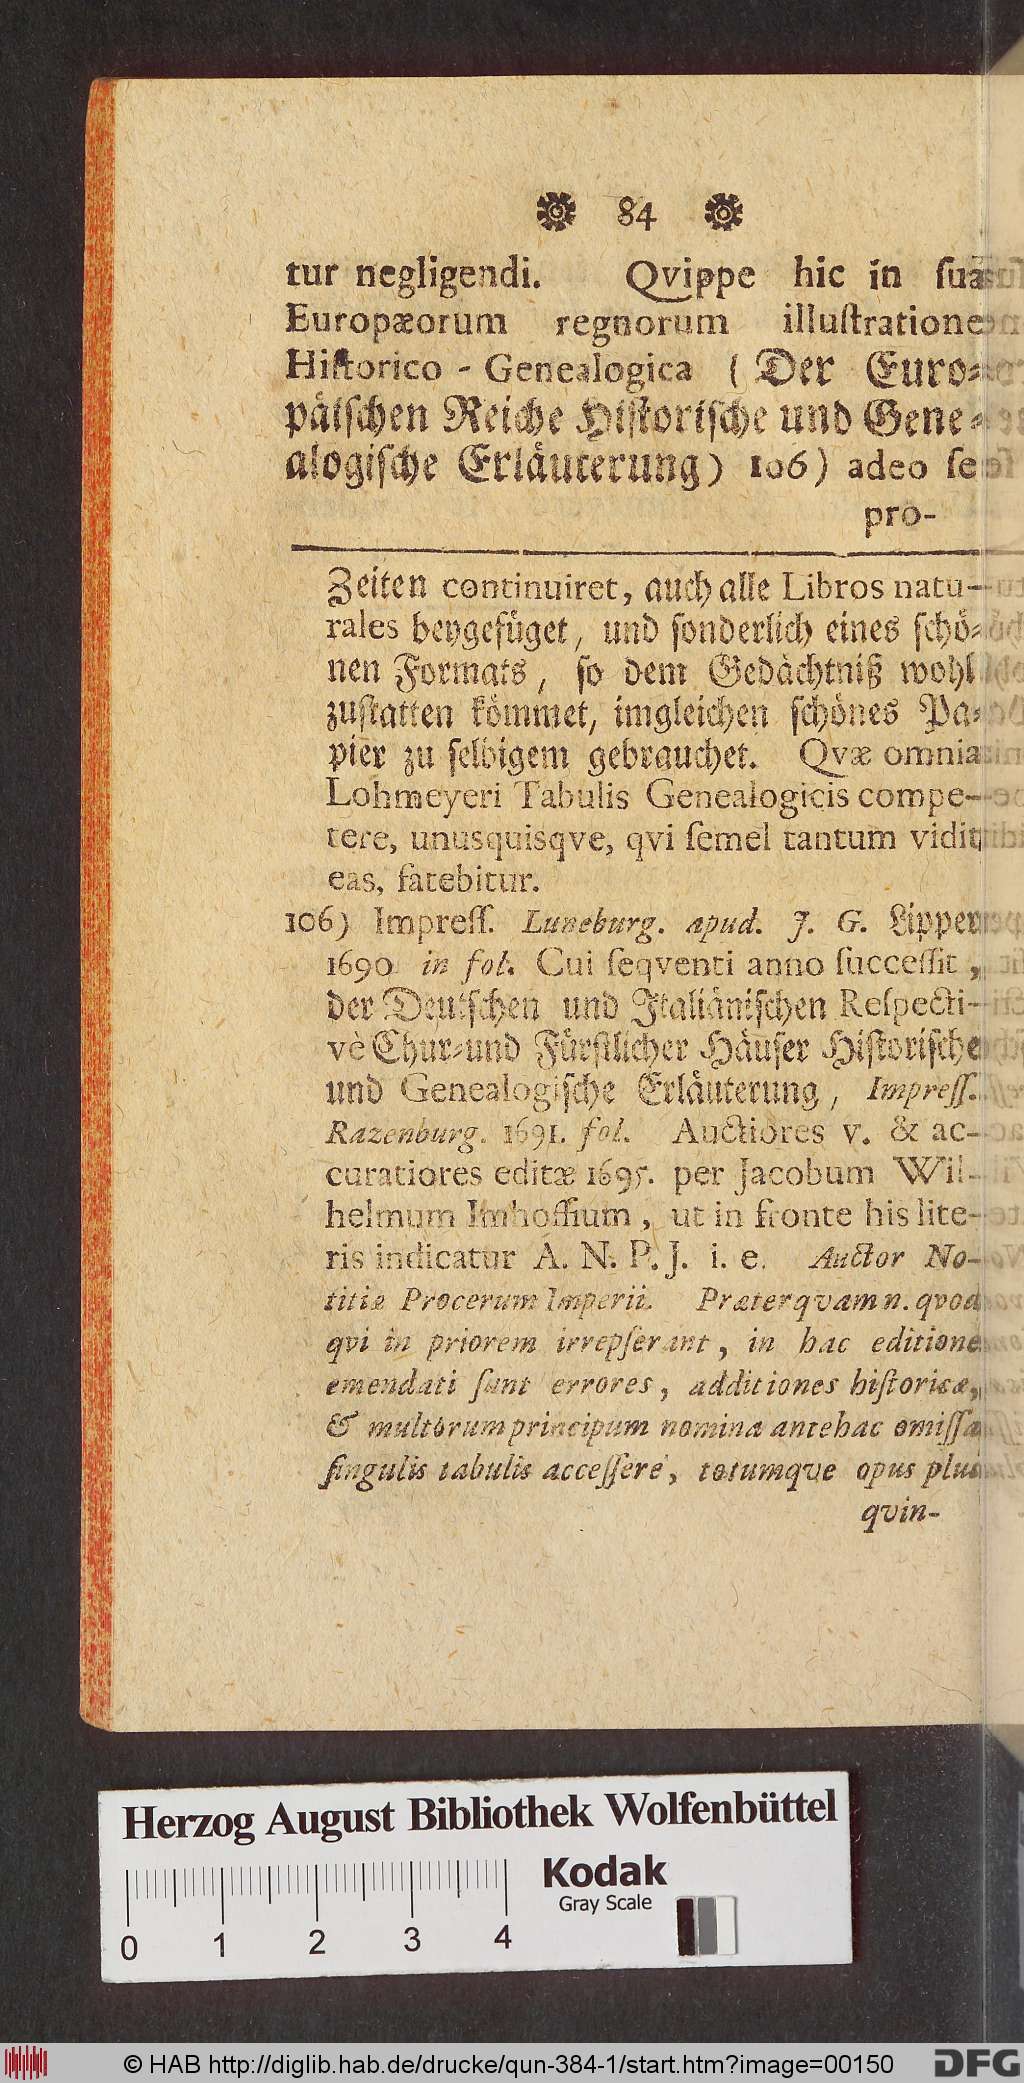 84
tur negligendi. Qvippe hic in ſuâ
Europæorum regnorum illuſtratione
Hiſtorico - Genealogica (Der Euro-
päiſchen Reiche Hiſtoriſche und Gene-
alogiſche Erläuterung) 106) adeo ſe
pro-
Zeiten continuiret, auch alle Libros natu-
rales beygefüget, und ſonderlich eines ſchö-
nen Formats, ſo dem Gedächtniß wohl
zuſtatten kömmet, imgleichen ſchönes Pa-
pier zu ſelbigem gebrauchet. Qvæ omnia
Lohmeyeri Tabulis Genealogicis compe-
tere, unusquisqve, qvi ſemel tantum vidit
eas, fatebitur.
106) Impreſſ. Luneburg. apud. J. G. Lipper
1690 in fol. Cui ſeqventi anno ſucceſſit,
der Deutſchen und Italiäniſchen Reſpecti-
vè Chur-und Fürſtlicher Häuſer Hiſtoriſche
und Genealogiſche Erläuterung, Impreſſ.
Razenburg. 1691. fol. Auctiores v. & ac-
curatiores editæ 1695. per Jacobum Wil-
helmum Imhoffium, ut in fronte his lite-
ris indicatur A. N. P. J. i. e. Auctor No-
titiæ Procerum Imperii. Præterqvam n. qvod
qvi in priorem irrepſerant, in hac editione
emendati ſunt errores, additiones hiſtoricæ,
& multorum principum nomina antehac omiſſa
ſingulis tabulis acceſſere, totumqve opus plus
qvin-
Herzog August Bibliothek Wolfenbüttel
Kodak
Gray Scale
0 1 2 3 4
© HAB http://diglib.hab.de/drucke/qun-384-1/start.htm?image=00150 DFG